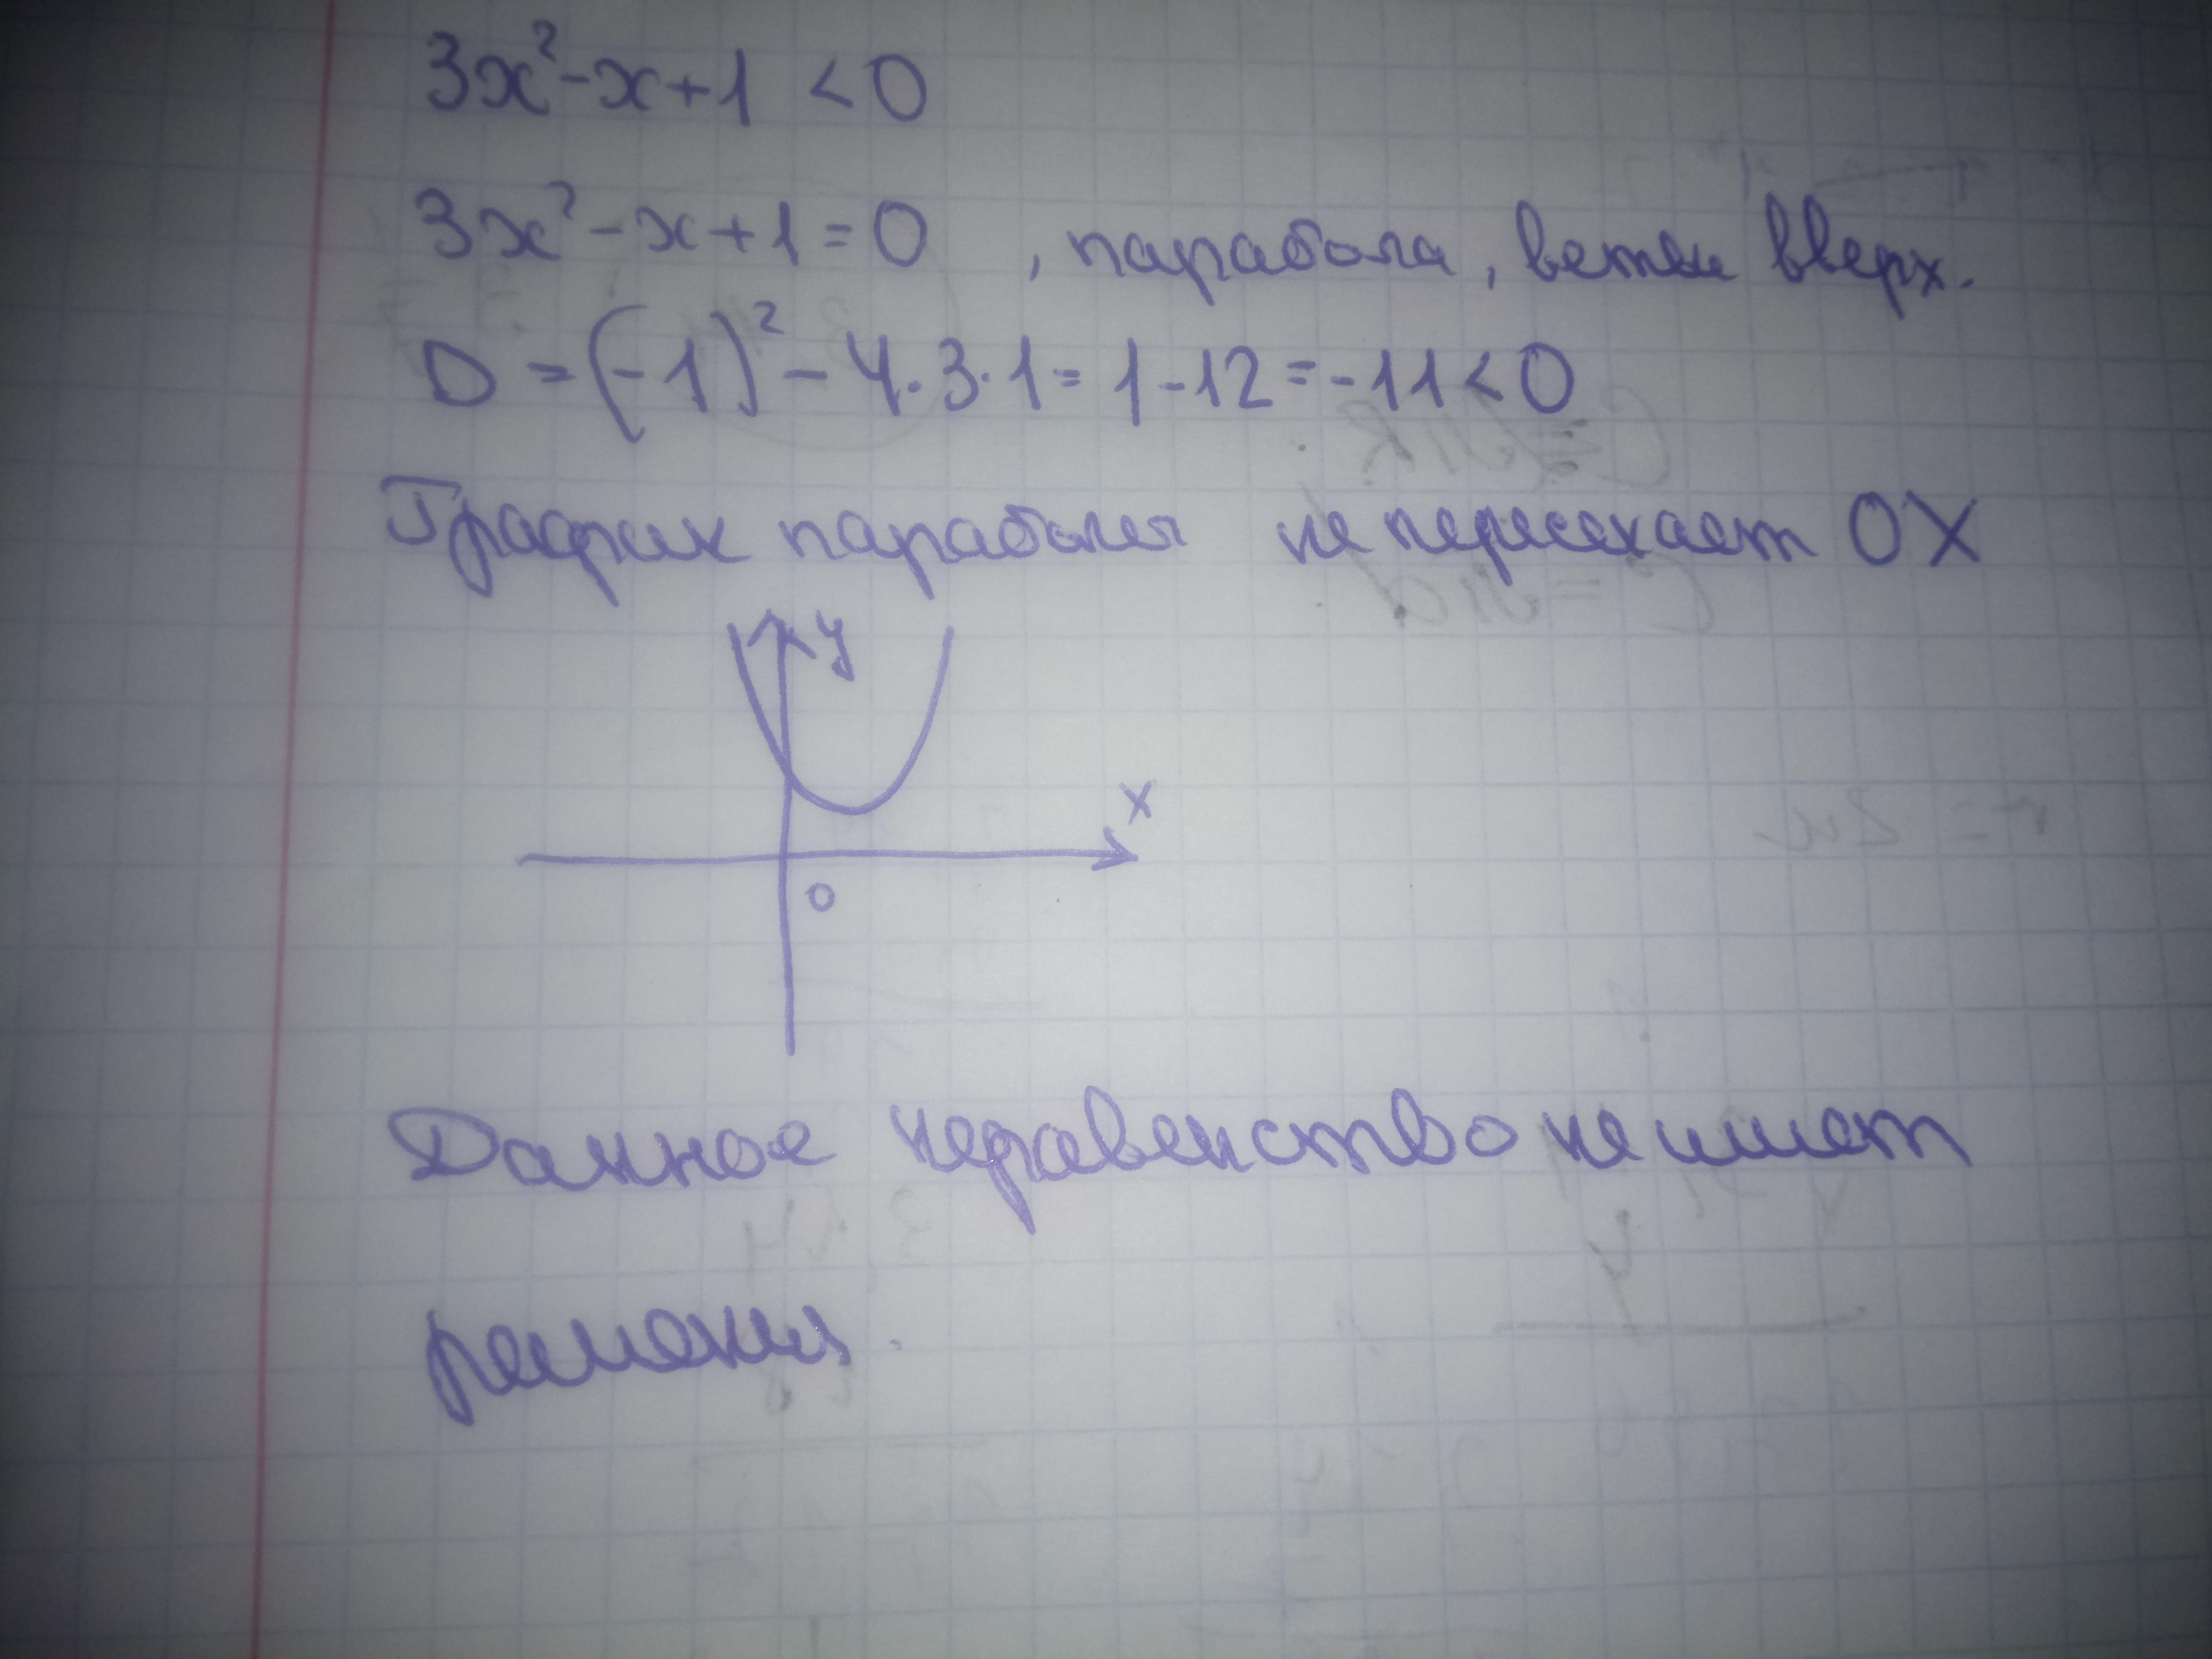 3x²-x+1 <0
3x²-x+1=0 , парабола, ветви вверх.
D=(-1)²-4·3·1=1-12=-11<0
График параболы не пересекает OX
y
x
0
Данное неравенство не имеет
решения.